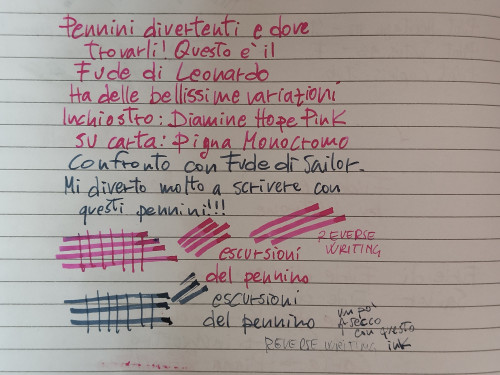 Pennini divertenti e dove
trovarli! Questo è il
Fude di Leonardo
Ha delle bellissime variazioni
Inchiostro: Diamine Hope Pink
su carta: Pigna Monocromo
Confronto con Fude di Sailor.
Mi diverto molto a scrivere con
questi pennini!!!
REVERSE
WRITING
escursioni
del pennino
escursioni
del pennino
un po'
secco
con questo
ink
REVERSE WRITING